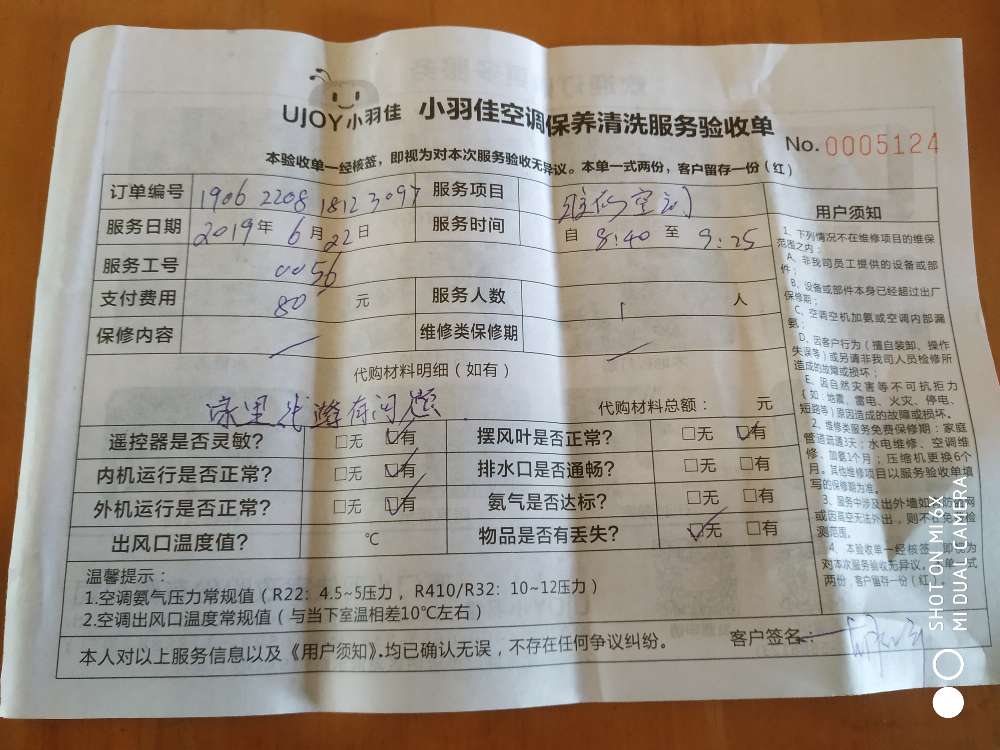 UJOY小羽佳 小羽佳空调保养清洗服务验收单
No. 0005124
本验收单一经核签，即视为对本次服务验收无异议。本单一式两份，客户留存一份（红）
订单编号 1906 2208 1812 3097 服务项目 维修空调
服务日期 2019年6月22日 服务时间 自 8:40 至 9:25
服务工号 0056
支付费用 80 元 服务人数 1 人
保修内容 维修类保修期
代购材料明细（如有）
家里线路有问题. 代购材料总额： 元
遥控器是否灵敏? □无 □有 摆风叶是否正常? □无 □有
内机运行是否正常? □无 □有 排水口是否通畅? □无 □有
外机运行是否正常? □无 □有 氨气是否达标? □无 □有
出风口温度值? ℃ 物品是否有丢失? □无 □有
温馨提示：
1.空调氨气压力常规值（R22：4.5~5压力，R410/R32：10~12压力）
2.空调出风口温度常规值（与当下室温相差10℃左右）
本人对以上服务信息以及《用户须知》.均已确认无误，不存在任何争议纠纷。 客户签名：
用户须知
1、下列情况不在维修项目的维保
范围之内：
A、非我司员工提供的设备或部
件；
B、设备或部件本身已经超过出厂
保修期；
C、空调空机加氨或空调内部漏
氨；
D、因客户行为（擅自装卸、操作
失误等）或另请非我司人员检修所
造成的故障或损坏；
E、因自然灾害等不可抗拒力
（如：地震、雷电、火灾、停电、
短路等）原因造成的故障或损坏。
2、维修类服务免费保修期：家庭
管道疏通3天；水电维修、空调维
修、加氨1个月；压缩机更换6个
月。其他维修项目以服务验收单填
写的保修期为准。
3、服务中涉及出外墙如 防 网
或因高空无法外出，则 检
测范围。
4、本验收单一经核签，即 为
对本次服务验收无异议。本单一式
两份，客户留存一份（红）。
SHOT ON MI 6X
MI DUAL CAMERA